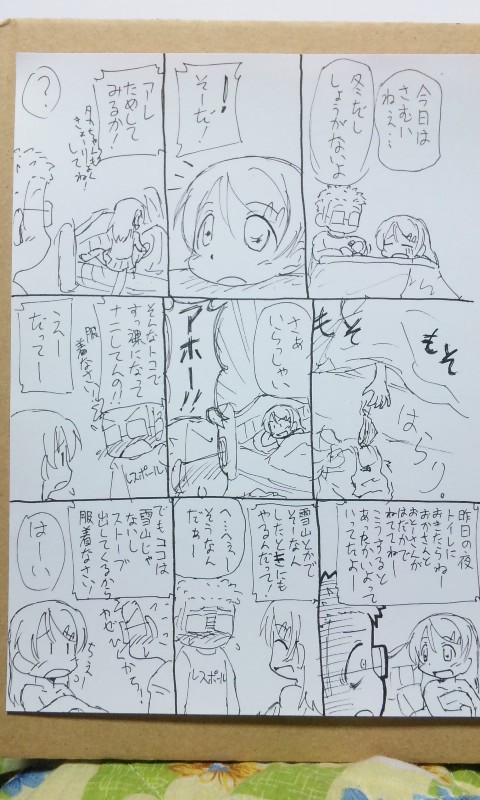 今日は
さむい
ねえ…
冬だし
しょうがないよ
！
そーだ！
アレ
ためして
みるか！
？
もそ
もそ
はらり。
さあ
いらっしゃい
アホー!!
そんなトコで
すっ裸になって
ナニしてんの!!
服
着なさい!!
レスポール
えー
だってー
昨日の夜
トイレに
おきたらね
おかさんと
おとーさんが
はだかで
ねててねー
こうすると
あったかいよって
いってたよー
雪山とかで
そーなん
したときにも
やるんだって！
へ…へぇー
そうなん
だぁー
レスポール
でもココは
雪山じゃ
ないし
ストーブ
出してくるから
服着なさい！
かぜひくから！
はーい
ちぇー